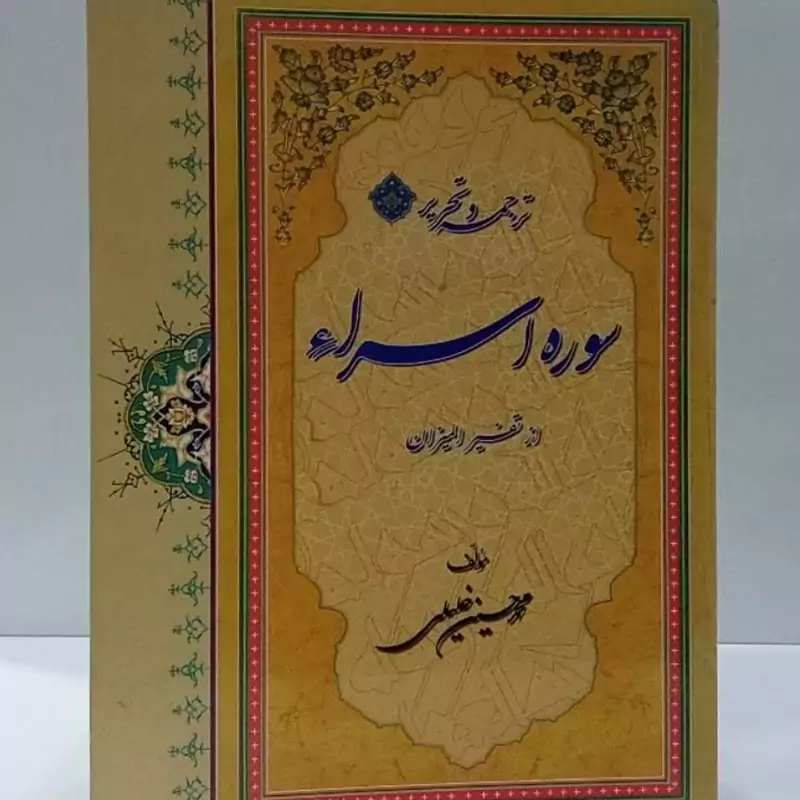 ترجمه و تحریر
سوره اسراء
از تفسیر المیزان
مؤلف
محمدحسین خلیلی